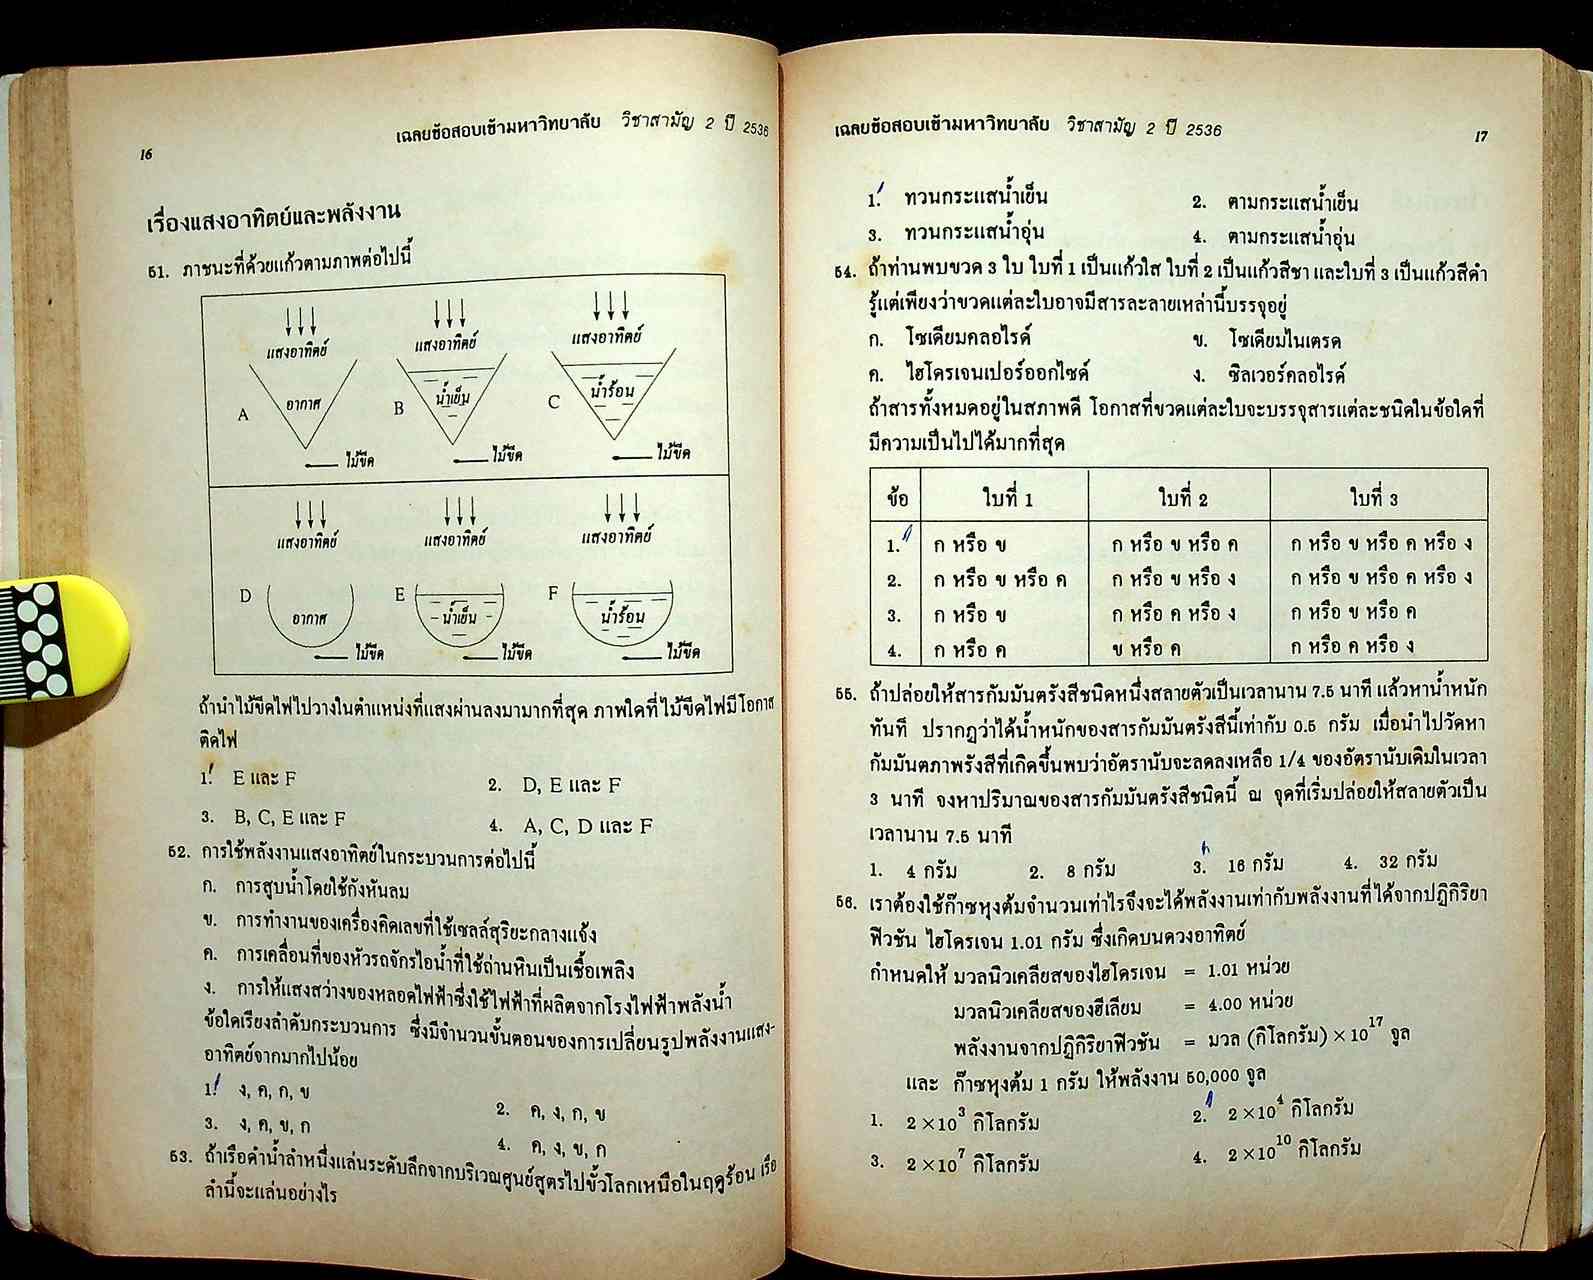 16
เฉลยข้อสอบเข้ามหาวิทยาลัย วิชาสามัญ 2 ปี 2536
เรื่องแสงอาทิตย์และพลังงาน
51. ภาชนะที่ด้วยแก้วตามภาพต่อไปนี้
แสงอาทิตย์ แสงอาทิตย์ แสงอาทิตย์
A อากาศ B น้ำเย็น C น้ำร้อน
ไม้ขีด ไม้ขีด ไม้ขีด
แสงอาทิตย์ แสงอาทิตย์ แสงอาทิตย์
D อากาศ E น้ำเย็น F น้ำร้อน
ไม้ขีด ไม้ขีด ไม้ขีด
ถ้านำไม้ขีดไฟไปวางในตำแหน่งที่แสงผ่านลงมามากที่สุด ภาพใดที่ไม้ขีดไฟมีโอกาส
ติดไฟ
1. E และ F 2. D, E และ F
3. B, C, E และ F 4. A, C, D และ F
52. การใช้พลังงานแสงอาทิตย์ในกระบวนการต่อไปนี้
ก. การสูบน้ำโดยใช้กังหันลม
ข. การทำงานของเครื่องคิดเลขที่ใช้เซลล์สุริยะกลางแจ้ง
ค. การเคลื่อนที่ของหัวรถจักรไอน้ำที่ใช้ถ่านหินเป็นเชื้อเพลิง
ง. การให้แสงสว่างของหลอดไฟฟ้าซึ่งใช้ไฟฟ้าที่ผลิตจากโรงไฟฟ้าพลังน้ำ
ข้อใดเรียงลำดับกระบวนการ ซึ่งมีจำนวนขั้นตอนของการเปลี่ยนรูปพลังงานแสง-
อาทิตย์จากมากไปน้อย
1. ง, ค, ก, ข 2. ค, ง, ก, ข
3. ง, ค, ข, ก 4. ค, ง, ข, ก
53. ถ้าเรือดำน้ำลำหนึ่งแล่นระดับลึกจากบริเวณศูนย์สูตรไปขั้วโลกเหนือในฤดูร้อน เรือ
ลำนี้จะแล่นอย่างไร
เฉลยข้อสอบเข้ามหาวิทยาลัย วิชาสามัญ 2 ปี 2536
17
1. ทวนกระแสน้ำเย็น 2. ตามกระแสน้ำเย็น
3. ทวนกระแสน้ำอุ่น 4. ตามกระแสน้ำอุ่น
54. ถ้าท่านพบขวด 3 ใบ ใบที่ 1 เป็นแก้วใส ใบที่ 2 เป็นแก้วสีชา และใบที่ 3 เป็นแก้วสีดำ
รู้แต่เพียงว่าขวดแต่ละใบอาจมีสารละลายเหล่านี้บรรจุอยู่
ก. โซเดียมคลอไรด์ ข. โซเดียมไนเตรด
ค. ไฮโดรเจนเปอร์ออกไซด์ ง. ซิลเวอร์คลอไรด์
ถ้าสารทั้งหมดอยู่ในสภาพดี โอกาสที่ขวดแต่ละใบจะบรรจุสารแต่ละชนิดในข้อใดที่
มีความเป็นไปได้มากที่สุด
ข้อ ใบที่ 1 ใบที่ 2 ใบที่ 3
1. ก หรือ ข ก หรือ ข หรือ ค ก หรือ ข หรือ ค หรือ ง
2. ก หรือ ข หรือ ค ก หรือ ข หรือ ง ก หรือ ข หรือ ค หรือ ง
3. ก หรือ ข ก หรือ ค หรือ ง ก หรือ ข หรือ ค
4. ก หรือ ค ข หรือ ค ก หรือ ค หรือ ง
55. ถ้าปล่อยให้สารกัมมันตรังสีชนิดหนึ่งสลายตัวเป็นเวลานาน 7.5 นาที แล้วหาน้ำหนัก
ทันที ปรากฏว่าได้น้ำหนักของสารกัมมันตรังสีนี้เท่ากับ 0.5 กรัม เมื่อนำไปวัดหา
กัมมันตภาพรังสีที่เกิดขึ้นพบว่าอัตรานับจะลดลงเหลือ 1/4 ของอัตรานับเดิมในเวลา
3 นาที จงหาปริมาณของสารกัมมันตรังสีชนิดนี้ ณ จุดที่เริ่มปล่อยให้สลายตัวเป็น
เวลานาน 7.5 นาที
1. 4 กรัม 2. 8 กรัม 3. 16 กรัม 4. 32 กรัม
56. เราต้องใช้ก๊าซหุงต้มจำนวนเท่าไรจึงจะได้พลังงานเท่ากับพลังงานที่ได้จากปฏิกิริยา
ฟิวชัน ไฮโดรเจน 1.01 กรัม ซึ่งเกิดบนดวงอาทิตย์
กำหนดให้ มวลนิวเคลียสของไฮโดรเจน = 1.01 หน่วย
มวลนิวเคลียสของฮีเลียม = 4.00 หน่วย
พลังงานจากปฏิกิริยาฟิวชัน = มวล (กิโลกรัม) × 10¹⁷ จูล
และ ก๊าซหุงต้ม 1 กรัม ให้พลังงาน 50,000 จูล
1. 2 × 10³ กิโลกรัม 2. 2 × 10⁴ กิโลกรัม
3. 2 × 10⁷ กิโลกรัม 4. 2 × 10¹⁰ กิโลกรัม